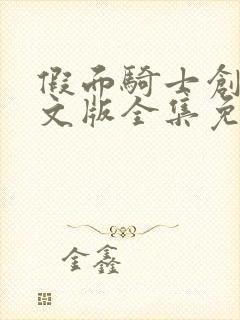 假面騎士創
文版全集免
金鑫